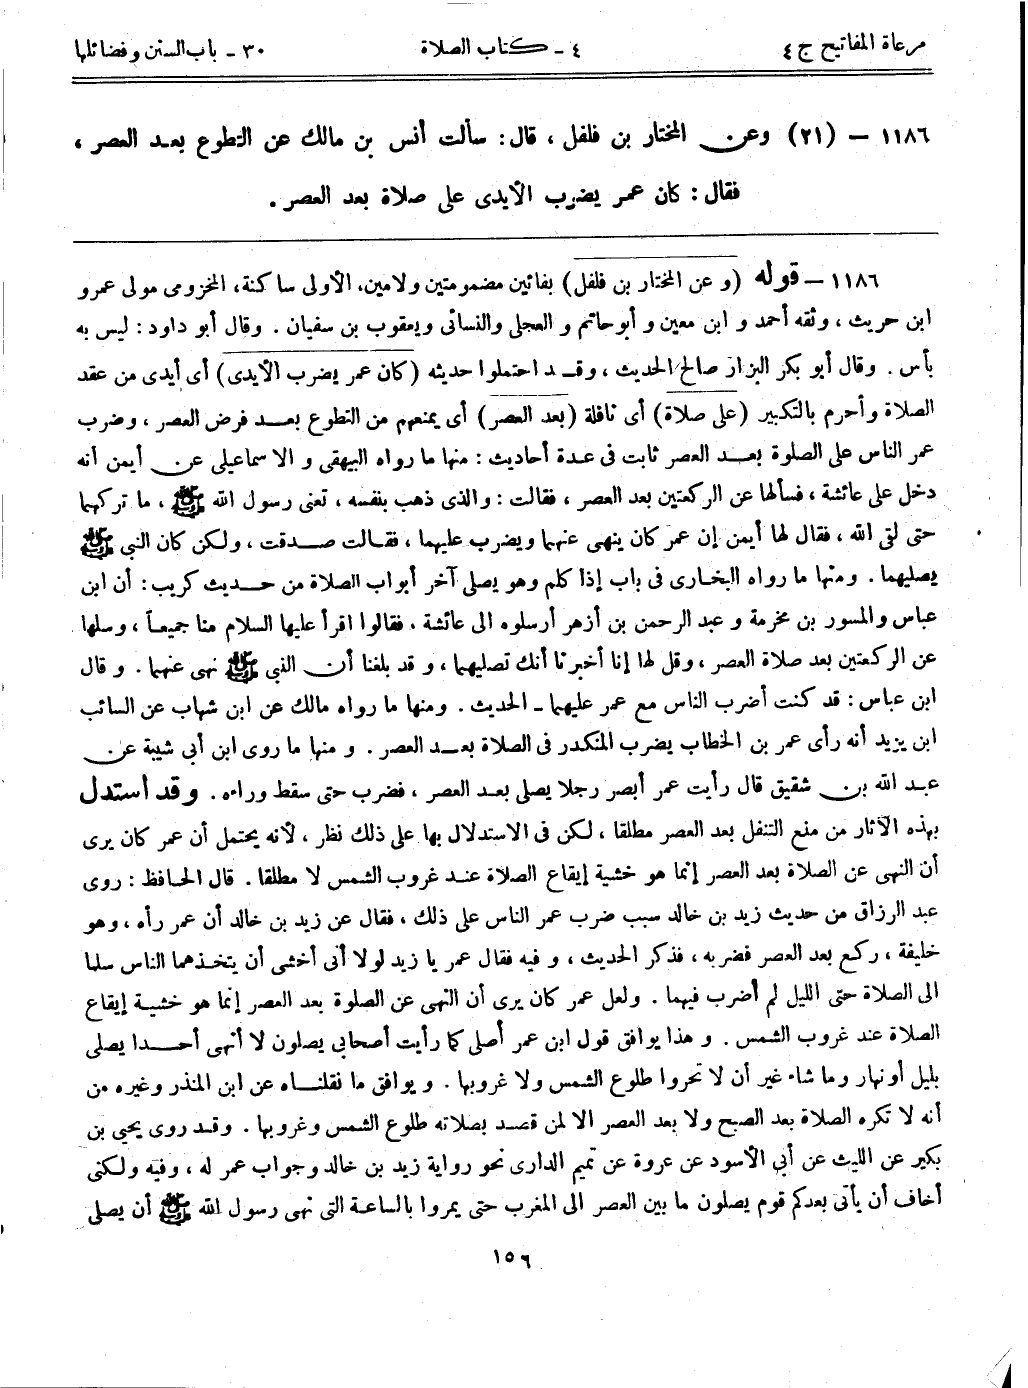 مرعاة المفاتيح ج ٤
٤ - كتاب الصلاة
٣٠ - باب السنن وفضائلها
١١٨٦ - (٢١) وعن المختار بن فلفل ، قال : سألت أنس بن مالك عن التطوع بعد العصر ،
فقال : كان عمر يضرب الأيدى على صلاة بعد العصر .
١١٨٦ - قوله (وعن المختار بن فلفل) بفائين مضمومتين ولامين، الأولى ساكنة، المخزومى مولى عمرو
ابن حريث ، وثقه أحمد و ابن معين و أبو حاتم و العجلى والنسائى ويعقوب بن سفيان . وقال أبو داود : ليس به
بأس . وقال أبو بكر البزار صالح الحديث ، وقد احتملوا حديثه (كان عمر يضرب الأيدى) أى أيدى من عقد
الصلاة وأحرم بالتكبير (على صلاة) أى نافلة (بعد العصر) أى يمنعهم من التطوع بعد فرض العصر ، وضرب
عمر الناس على الصلوة بعد العصر ثابت فى عدة أحاديث : منها ما رواه البيهقى و الاسماعيلى عن أيمن أنه
دخل على عائشة ، فسألها عن الركعتين بعد العصر ، فقالت : والذى ذهب بنفسه ، تعنى رسول الله ﷺ ، ما تركهما
حتى لقى الله ، فقال لها أيمن إن عمر كان ينهى عنهما ويضرب عليهما ، فقالت صدقت ، ولكن كان النبي ﷺ
يصليهما . ومنها ما رواه البخارى فى باب إذا كلم وهو يصلى آخر أبواب الصلاة من حديث كريب : أن ابن
عباس والمسور بن مخرمة و عبد الرحمن بن أزهر أرسلوه الى عائشة . فقالوا اقرأ عليها السلام منا جميعاً ، وسلها
عن الركعتين بعد صلاة العصر ، وقل لها إنا أخبرنا أنك تصليهما ، و قد بلغنا أن النبي ﷺ نهى عنهما . و قال
ابن عباس : قد كنت أضرب الناس مع عمر عليهما - الحديث . ومنها ما رواه مالك عن ابن شهاب عن السائب
ابن يزيد أنه رأى عمر بن الخطاب يضرب المنكدر فى الصلاة بعد العصر . و منها ما روى ابن أبى شيبة عن
عبد الله بن شقيق قال رأيت عمر أبصر رجلا يصلى بعد العصر ، فضرب حتى سقط وراءه . وقد أستدل
بهذه الآثار من منع التنفل بعد العصر مطلقا ، لكن فى الاستدلال بها على ذلك نظر ، لأنه يحتمل أن عمر كان يرى
أن النهى عن الصلاة بعد العصر إنما هو خشية إيقاع الصلاة عند غروب الشمس لا مطلقا . قال الحافظ : روى
عبد الرزاق من حديث زيد بن خالد سبب ضرب عمر الناس على ذلك ، فقال عن زيد بن خالد أن عمر رآه ، وهو
خليفة ، ركع بعد العصر فضربه ، فذكر الحديث ، و فيه فقال عمر يا زيد لولا أنى أخشى أن يتخذهما الناس سلما
الى الصلاة حتى الليل لم أضرب فيهما . ولعل عمر كان يرى أن النهى عن الصلوة بعد العصر إنما هو خشية إيقاع
الصلاة عند غروب الشمس . و هذا يوافق قول ابن عمر أصلى كما رأيت أصحابى يصلون لا أنهى أحدا يصلى
بليل أو نهار وما شاء غير أن لا تحروا طلوع الشمس ولا غروبها . و يوافق ما نقلناه عن ابن المنذر وغيره من
أنه لا تكره الصلاة بعد الصبح ولا بعد العصر الا لمن قصد بصلاته طلوع الشمس وغروبها . وقد روى يحيى بن
بكير عن الليث عن أبى الأسود عن عروة عن تميم الدارى نحو رواية زيد بن خالد وجواب عمر له ، وفيه ولكنى
أخاف أن يأتى بعدكم قوم يصلون ما بين العصر الى المغرب حتى يمروا بالساعة التى نهى رسول الله ﷺ أن يصلى
١٥٦